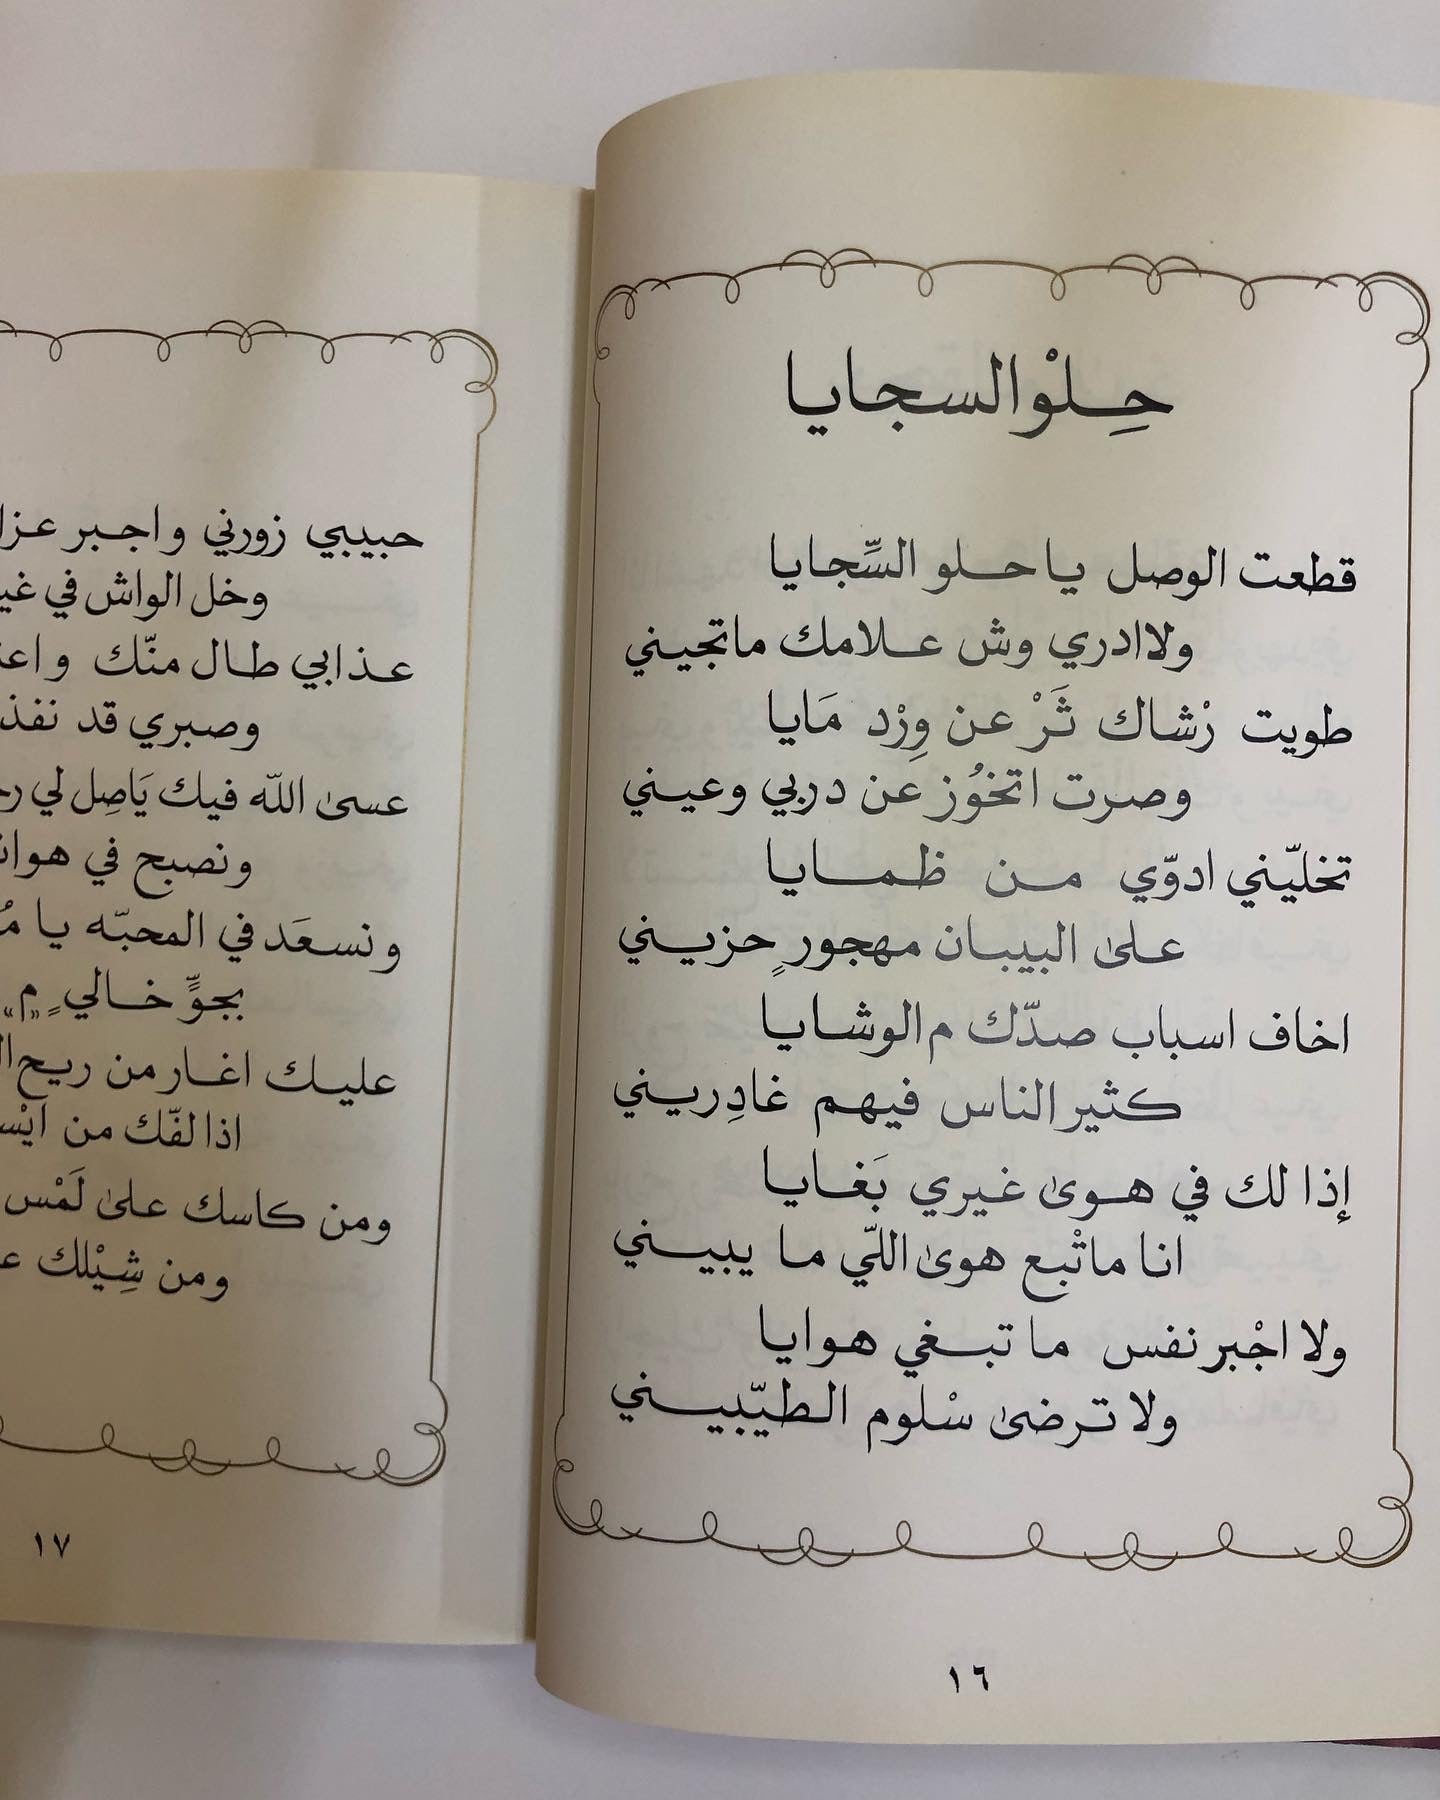 حِلْو السجايا
قطعت الوصل يا حلو السِّجايا
ولا ادري وش علامك ماتجيني
طويت رْشاك ثَرْ عن وِرْد مَايا
وصرت اتخُوز عن دربي وعيني
تخليّني ادوّي من ظمايا
على البيبان مهجورٍ حزيني
اخاف اسباب صدّك م الوشايا
كثير الناس فيهم غادِريني
إذا لك في هوى غيري بَغايا
انا ماتْبع هوى اللّي ما يبيني
ولا اجْبر نفس ما تبغي هوايا
ولا ترضى سْلوم الطيّبيني
١٦
حبيبي زورني واجبر
وخل الواش في
عذابي طال منّك
وصبري قد نفذ
عسى الله فيك يَاصِل لي
ونصبح في
ونسعَد في المحبّه يا
بجوٍّ خالي
عليك اغار من ريح
اذا لفّك من
ومن كاسك على لَمْس
ومن شِيْلك
١٧